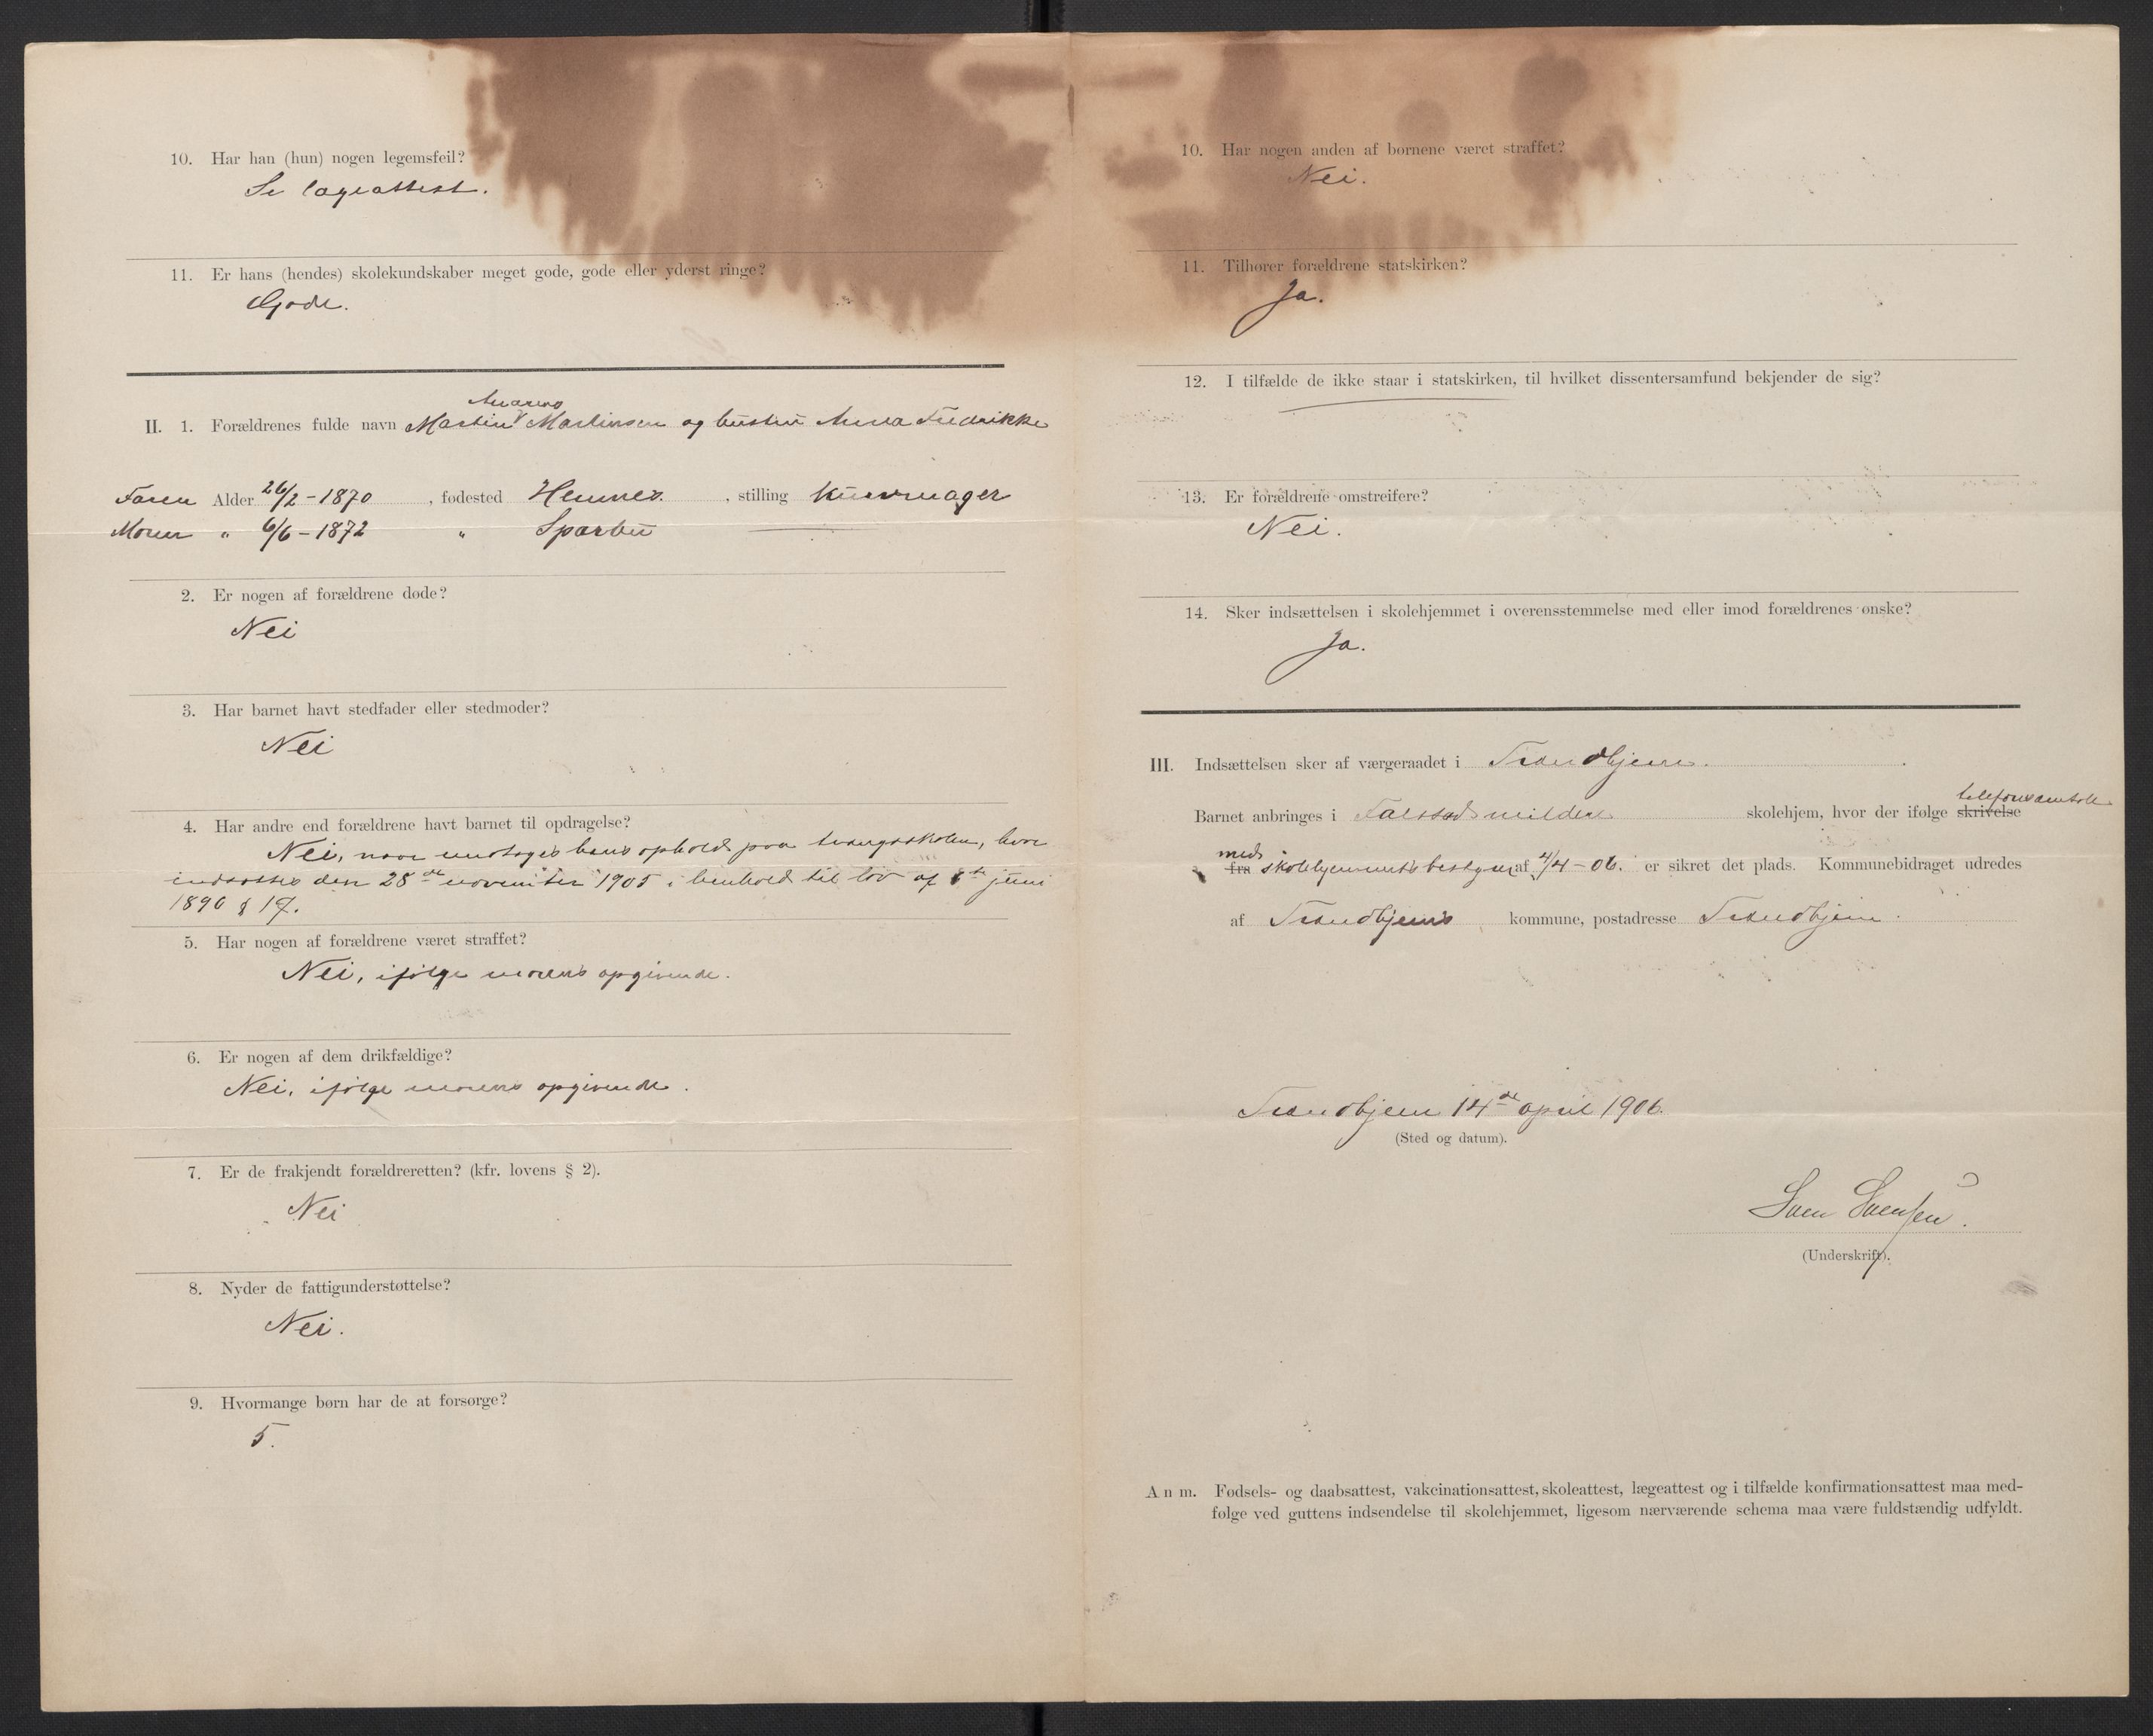 10. Har han (hun) nogen legemsfeil?
Se lægeattest.
11. Er hans (hendes) skolekundskaber meget gode, gode eller yderst ringe?
Gode.
II. 1. Forældrenes fulde navn Martin Martinsen og hustru Anna Fredrikke
Faren Alder 26/2 - 1870, fødested Hemnes. , stilling Kurvmager
Moren " 6/6 - 1872 " Sparbu
2. Er nogen af forældrene døde?
Nei
3. Har barnet havt stedfader eller stedmoder?
Nei
4. Har andre end forældrene havt barnet til opdragelse?
Nei, naar undtages hans ophold paa tvangsskolen, hvor
indsattes den 28de november 1905 i henhold til lov af 6te juni
1896 § 17.
5. Har nogen af forældrene været straffet?
Nei, ifølge morens opgivende.
6. Er nogen af dem drikfældige?
Nei, ifølge morens opgivende.
7. Er de frakjendt forældreretten? (kfr. lovens § 2).
Nei
8. Nyder de fattigunderstøttelse?
Nei.
9. Hvormange børn har de at forsørge?
5.
10. Har nogen anden af børnene været straffet?
Nei.
11. Tilhører forældrene statskirken?
Ja.
12. I tilfælde de ikke staar i statskirken, til hvilket dissentersamfund bekjender de sig?
13. Er forældrene omstreifere?
Nei.
14. Sker indsættelsen i skolehjemmet i overensstemmelse med eller imod forældrenes ønske?
Ja.
III. Indsættelsen sker af værgeraadet i Trondhjem.
telefonsamtale
Barnet anbringes i Falstads mildere skolehjem, hvor der ifølge skrivelse
med
fra skolehjemmets bestyrer af 4/4 - 06. er sikret det plads. Kommunebidraget udredes
af Trondhjems kommune, postadresse Trondhjem.
Trondhjem 14de april 1906.
(Sted og datum).
Sven Svensen.
(Underskrift).
Anm. Fødsels- og daabsattest, vakcinationsattest, skoleattest, lægeattest og i tilfælde konfirmationsattest maa med-
følge ved guttens indsendelse til skolehjemmet, ligesom nærværende schema maa være fuldstændig udfyldt.